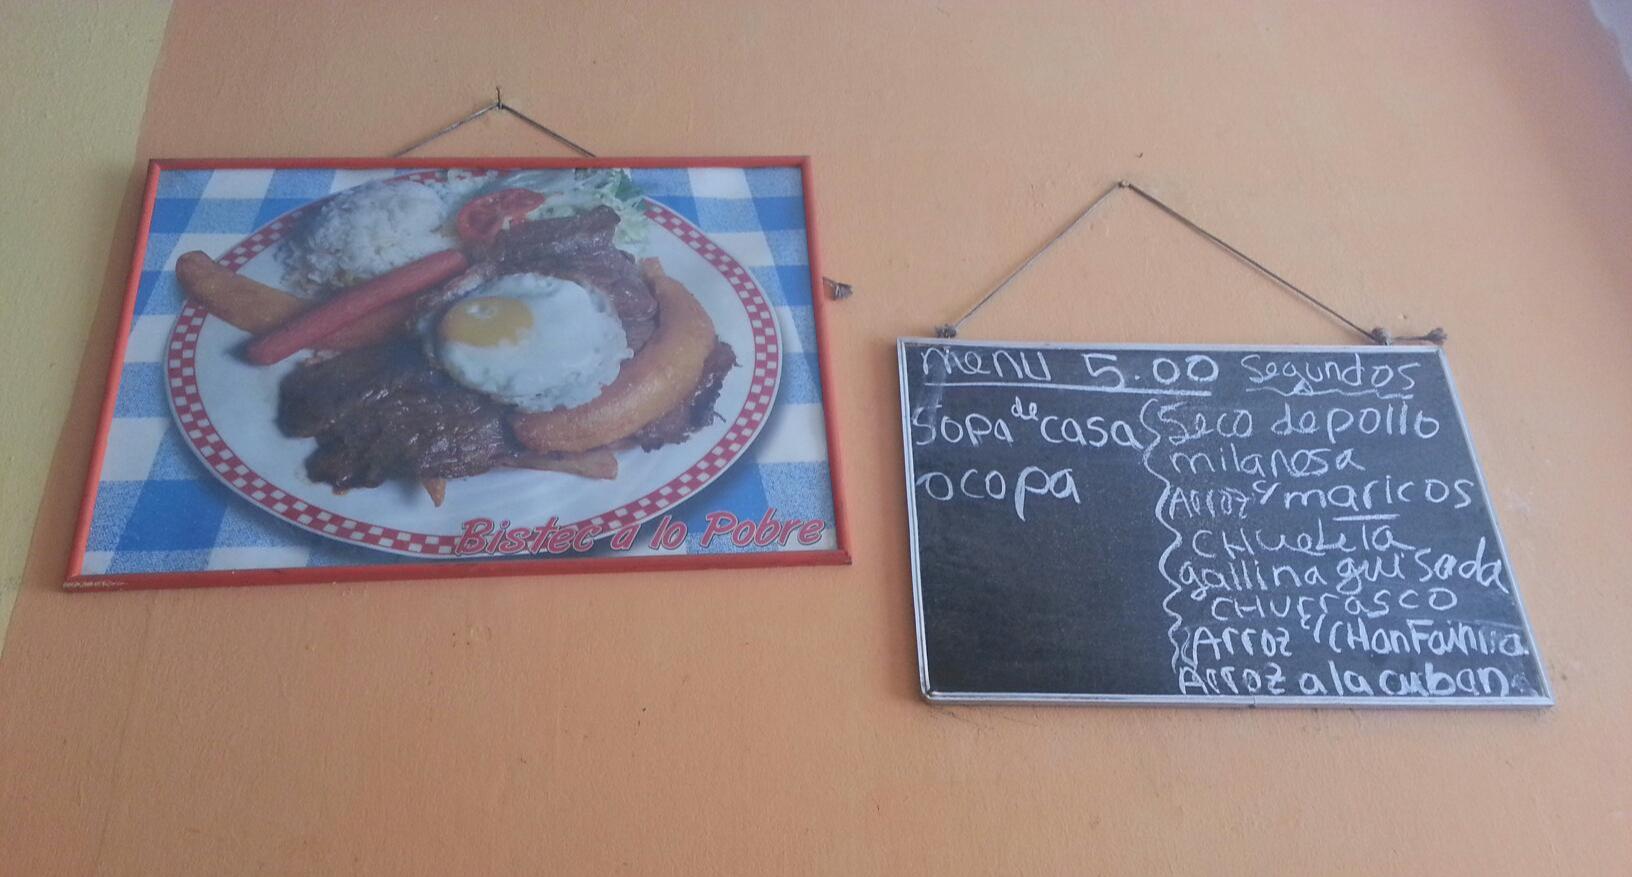 Bistec a lo Pobre
menu 5.00
Sopa de casa
ocopa
Segundos
Seco de pollo
milanesa
Arroz y maricos
CHULETA
gallina guisada
CHUrrasco
Arroz y CHanFainita
Arroz a la cubana